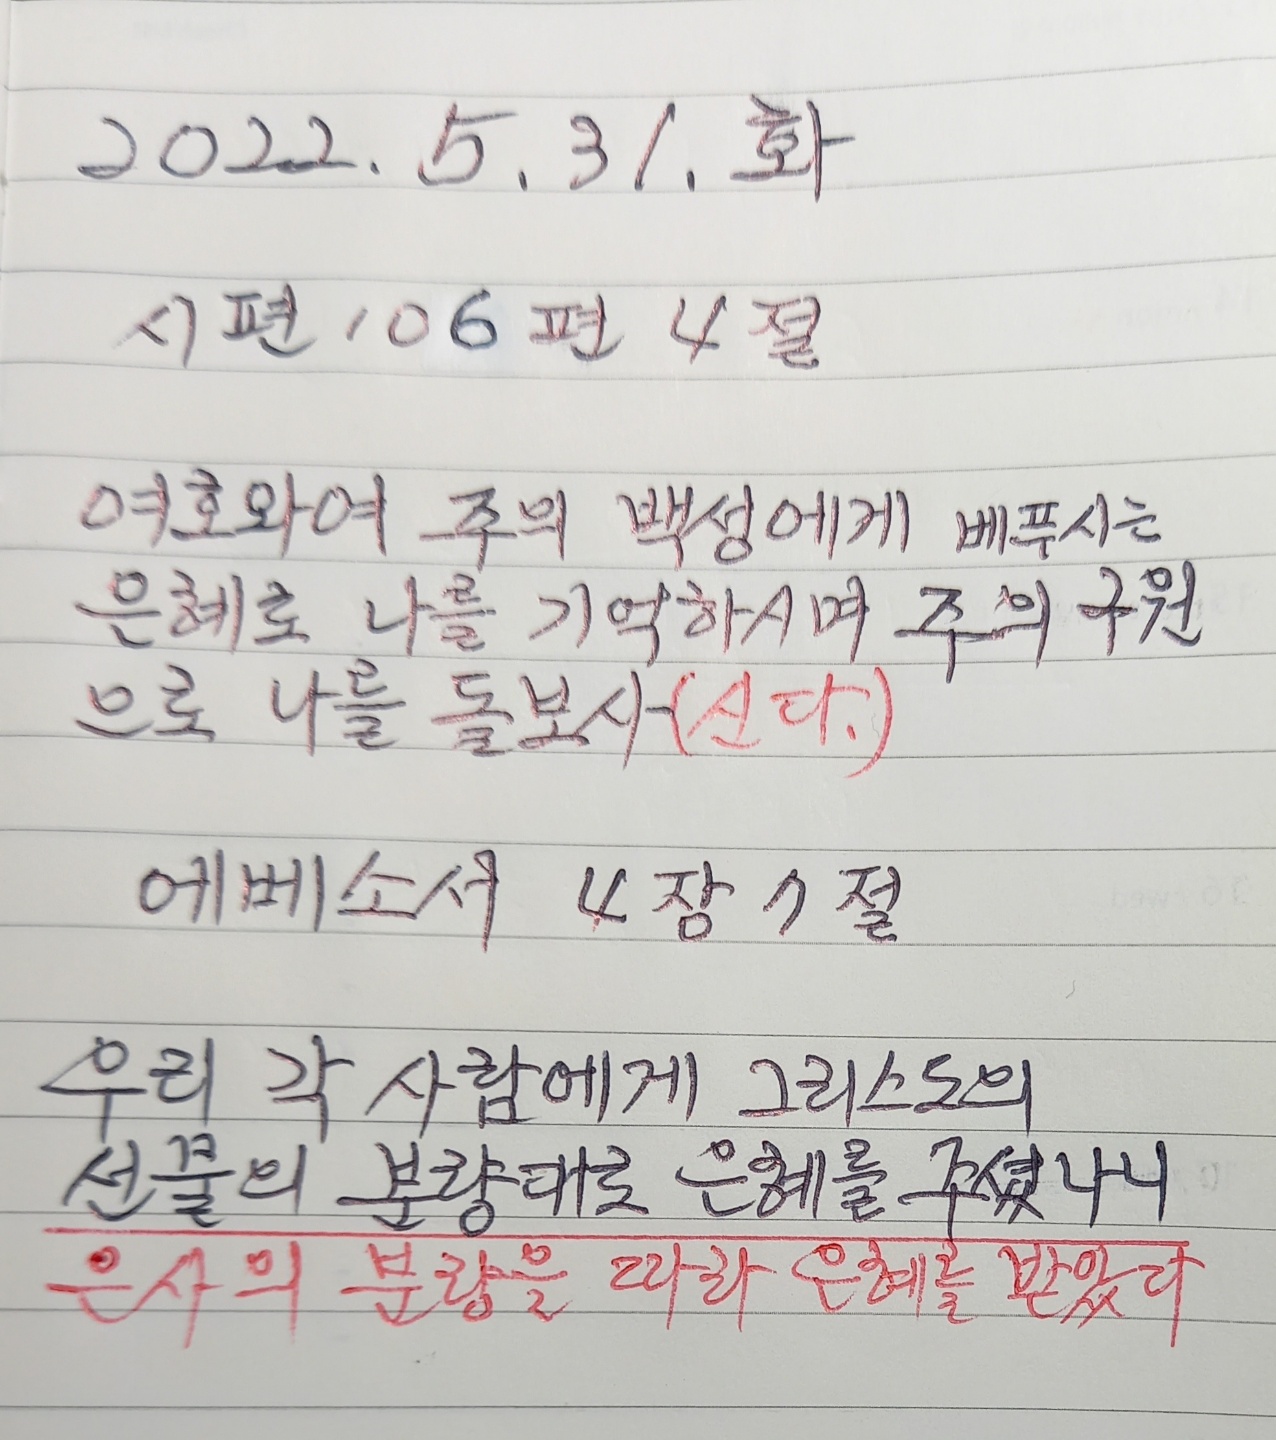 2022. 5. 31. 화
시편 106편 4절
여호와여 주의 백성에게 베푸시는
은혜로 나를 기억하시며 주의 구원
으로 나를 돌보사(신다.)
에베소서 4장 7절
우리 각 사람에게 그리스도의
선물의 분량대로 은혜를 주셨나니
은사의 분량을 따라 은혜를 받았다